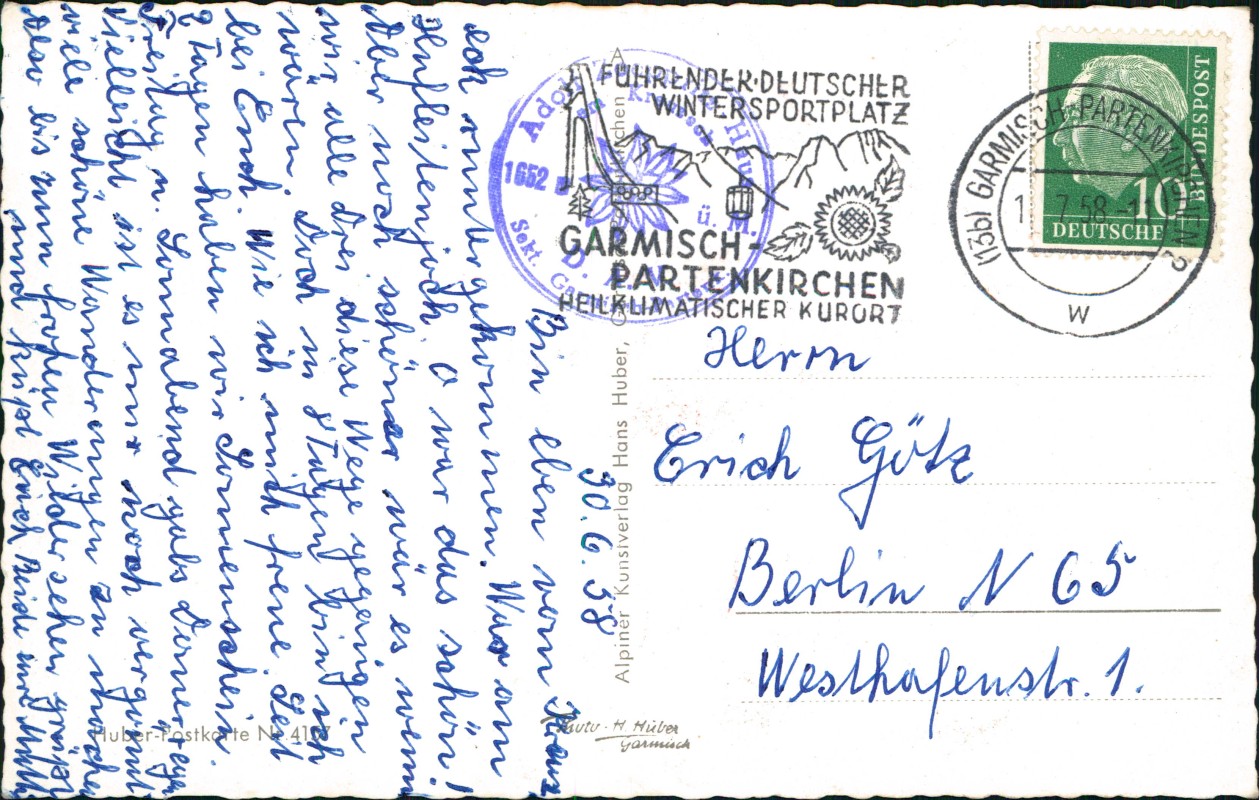 30.6.58
Bin eben vom Kreuz
eck runtergekommen. War am
Stuflestenjoch O war das schön!
Aber noch schöner wär es wenn
wir alle drei diese Wege gegangen
wären. Doch in 8 Tagen bin ich
bei Euch. Wie ich mich freue. Seit
2 Tagen haben wir Sonnenschein.
Freitag u. Sonnabend gabs Dauerregen
Vielleicht ist es mir noch vergönnt
viele schöne Wanderungen zu machen
Also bis zum frohen Wiedersehen grüßt
und küßt Euch Beide eure
FÜHRENDER·DEUTSCHER
WINTERSPORTPLATZ
GARMISCH-
PARTENKIRCHEN
HEILKLIMATISCHER KURORT
Adolf
1652 m
ü. M.
Sekt.
(13b) GARMISCH-PARTENKIRCHEN 2
7.58.-11
w
DEUTSCHE
BUNDESPOST
10
Herrn
Erich Götz
Berlin N 65
Westhafenstr. 1.
Alpiner Kunstverlag Hans Huber,
Huber-Postkarte Nr.
H. Huber
Garmisch